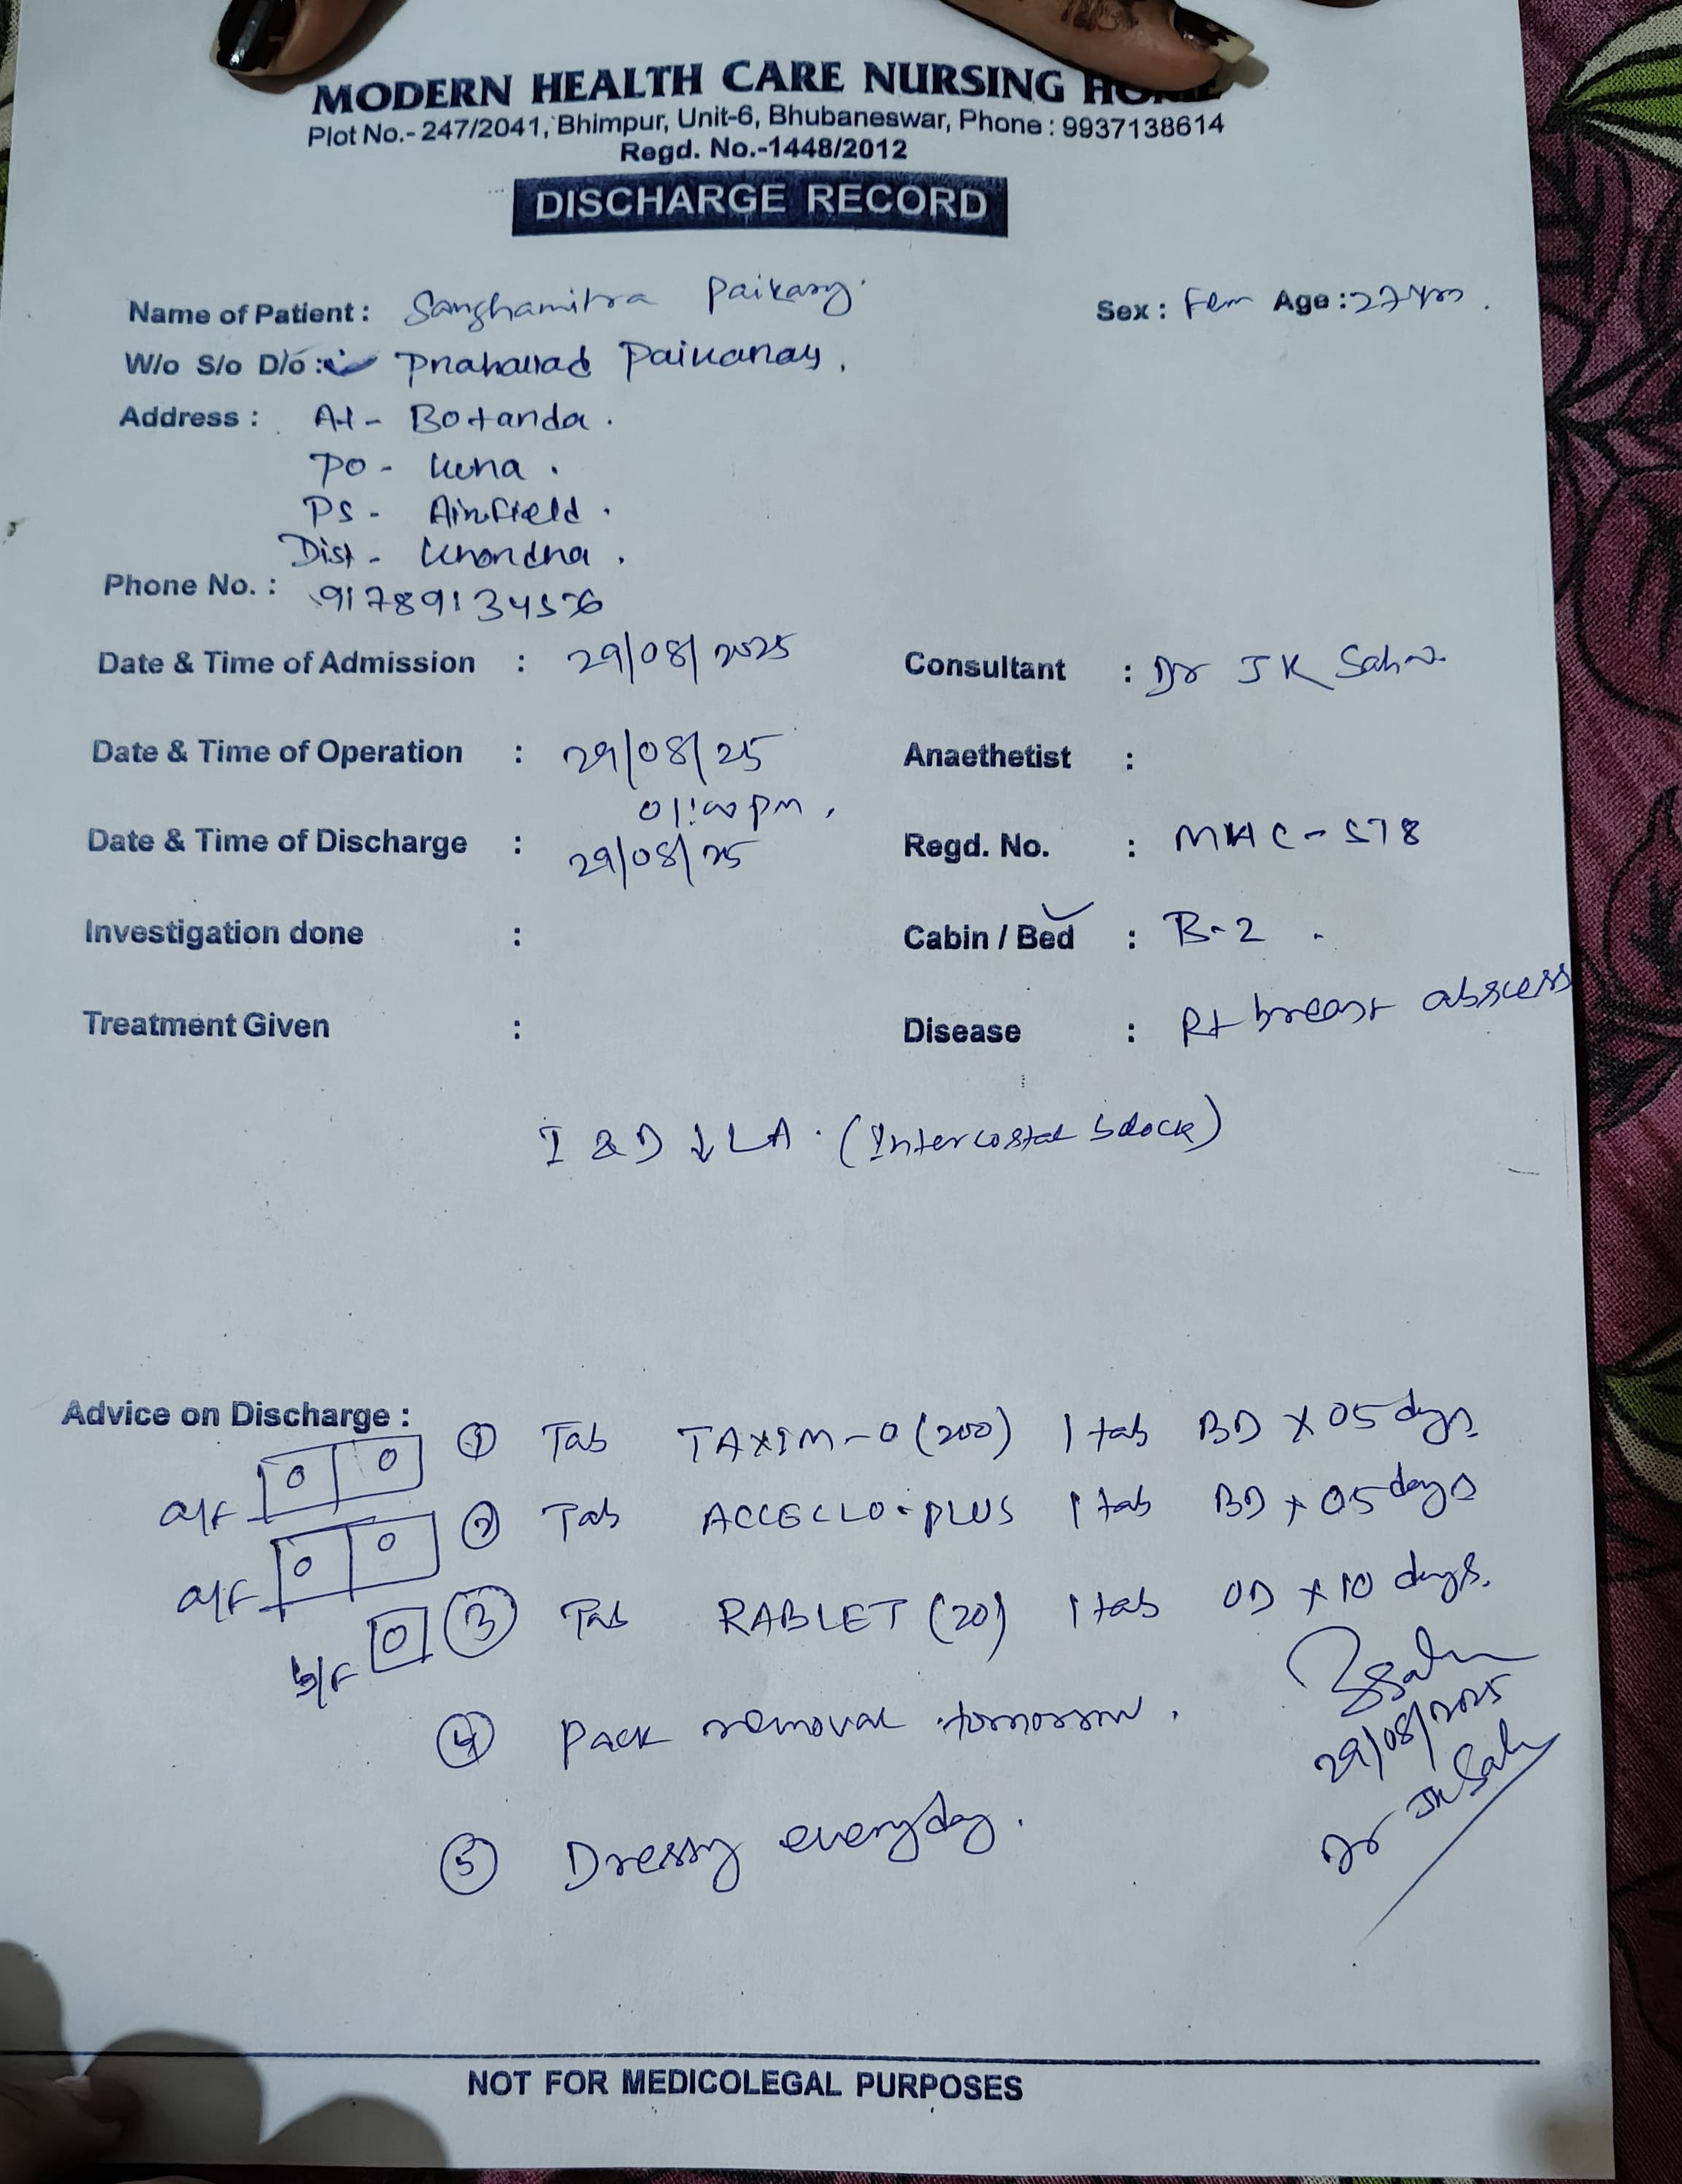 MODERN HEALTH CARE NURSING HOME
Plot No.- 247/2041, Bhimpur, Unit-6, Bhubaneswar, Phone : 9937138614
Regd. No.-1448/2012
DISCHARGE RECORD
Name of Patient : Sanghamitra Paikaray. Sex : Fem Age : 27 yrs.
W/o S/o D/o : Prahallad Paikaray.
Address : At - Botanda.
Po -
Ps - Airfield.
Dist - Khordha.
Phone No. :
Date & Time of Admission : 29/08/2025 Consultant : Dr J K Sahu
Date & Time of Operation : 29/08/25 Anaethetist :
01:00 pm.
Date & Time of Discharge : 29/08/25 Regd. No. : MHC-578
Investigation done : Cabin / Bed : B-2.
Treatment Given : Disease : Rt breast abscess
I & D ↓ LA. (Intercostal block)
Advice on Discharge : ① Tab TAXIM-O (200) 1 tab BD x 05 days
a/F 0 0
② Tab ACCECLO-PLUS 1 tab BD x 05 days
a/F 0 0
③ Tab RABLET (20) 1 tab OD x 10 days.
b/F 0
④ Pack removal tomorrow.
29/08/2025
⑤ Dressing everyday.
Dr JK Sahu
NOT FOR MEDICOLEGAL PURPOSES